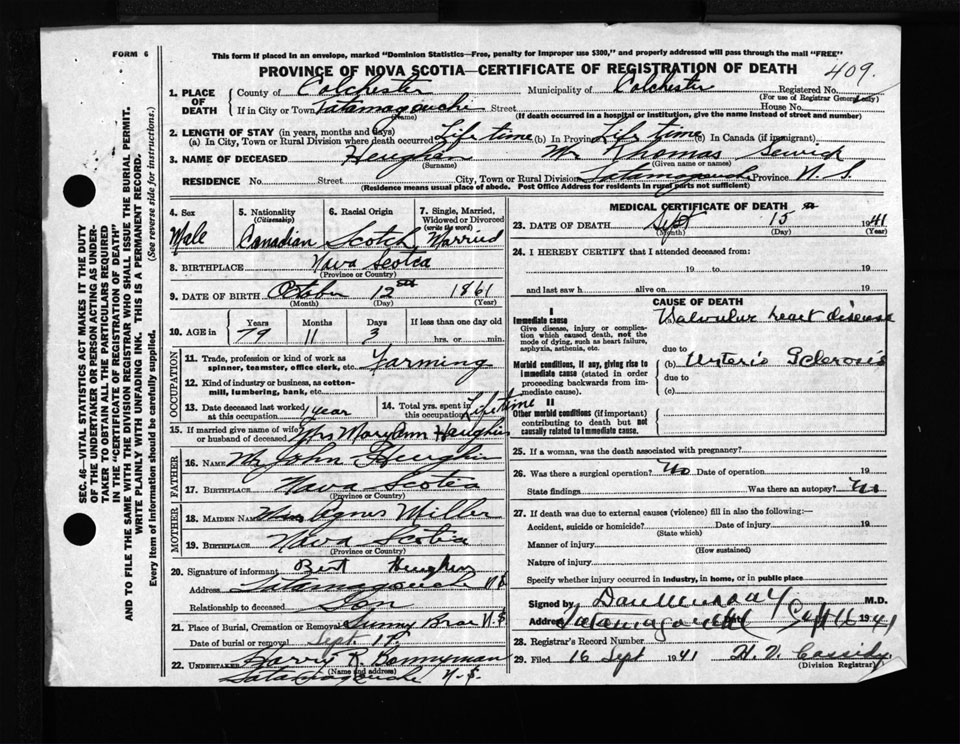 FORM 6
This form if placed in an envelope, marked "Dominion Statistics—Free, penalty for improper use $300," and properly addressed will pass through the mail "FREE"
PROVINCE OF NOVA SCOTIA—CERTIFICATE OF REGISTRATION OF DEATH
409.
1. PLACE OF DEATH County of Colchester Municipality of Colchester Registered No.
(For use of Registrar General only)
If in City or Town Tatamagouche Street House No.
(Name) (If death occurred in a hospital or institution, give the name instead of street and number)
2. LENGTH OF STAY (in years, months and days)
(a) In City, Town or Rural Division where death occurred Life time (b) In Province Life time (c) In Canada (if immigrant)
3. NAME OF DECEASED Heughan Mr Thomas
(Surname) (Given name or names)
RESIDENCE No. Street City, Town or Rural Division Tatamagouche Province N. S.
(Residence means usual place of abode. Post Office Address for residents in rural parts not sufficient)
4. Sex 5. Nationality (Citizenship) 6. Racial Origin 7. Single, Married, Widowed or Divorced (write the word)
Male Canadian Scotch Married
8. BIRTHPLACE Nova Scotia
(Province or Country)
9. DATE OF BIRTH October 12th 1861
(Month) (Day) (Year)
10. AGE in Years Months Days If less than one day old
79 11 3 hrs. or min.
OCCUPATION
11. Trade, profession or kind of work as spinner, teamster, office clerk, etc. Farming
12. Kind of industry or business, as cotton-mill, lumbering, bank, etc.
13. Date deceased last worked at this occupation 1 year 14. Total yrs. spent in this occupation Life time
15. If married give name of wife or husband of deceased Mrs Mary Ann Heughan
FATHER
16. NAME Mr John Heughan
17. BIRTHPLACE Nova Scotia
(Province or Country)
MOTHER
18. MAIDEN NAME Agnes Miller
19. BIRTHPLACE Nova Scotia
(Province or Country)
20. Signature of informant Bert Heughan
Address Tatamagouche N.S
Relationship to deceased Son
21. Place of Burial, Cremation or Removal Sunny Brae N.S
Date of burial or removal Sept. 17
22. UNDERTAKER Harry R. Bonnyman
(Name and address)
Tatamagouche N.S.
MEDICAL CERTIFICATE OF DEATH
23. DATE OF DEATH Sept 15th 1941
(Month) (Day) (Year)
24. I HEREBY CERTIFY that I attended deceased from:
19 to 19
and last saw h alive on 19
CAUSE OF DEATH
I
Immediate cause Valvular heart disease
Give disease, injury or complication which caused death, not the mode of dying, such as heart failure, asphyxia, asthenia, etc.
due to
Morbid conditions, if any, giving rise to immediate cause (stated in order proceeding backwards from immediate cause).
(b) Sclerosis
due to
(c)
II
Other morbid conditions (if important) contributing to death but not causally related to immediate cause.
25. If a woman, was the death associated with pregnancy?
26. Was there a surgical operation? No Date of operation 19
State findings Was there an autopsy? No
27. If death was due to external causes (violence) fill in also the following:—
Accident, suicide or homicide? Date of injury 19
(State which)
Manner of injury
(How sustained)
Nature of injury
Specify whether injury occurred in industry, in home, or in public place
Signed by Dan Murray M.D.
Address Tatamagouche Date Sept 16 1941
28. Registrar's Record Number
29. Filed 16 Sept 1941 H. V. Cassidy
(Division Registrar)
SEC. 46—VITAL STATISTICS ACT MAKES IT THE DUTY
OF THE UNDERTAKER OR PERSON ACTING AS UNDER-
TAKER TO OBTAIN ALL THE PARTICULARS REQUIRED
IN THE "CERTIFICATE OF REGISTRATION OF DEATH"
AND TO FILE THE SAME WITH THE DIVISION REGISTRAR WHO SHALL ISSUE THE BURIAL PERMIT.
WRITE PLAINLY WITH UNFADING INK. THIS IS A PERMANENT RECORD.
Every item of information should be carefully supplied. (See reverse side for instructions.)